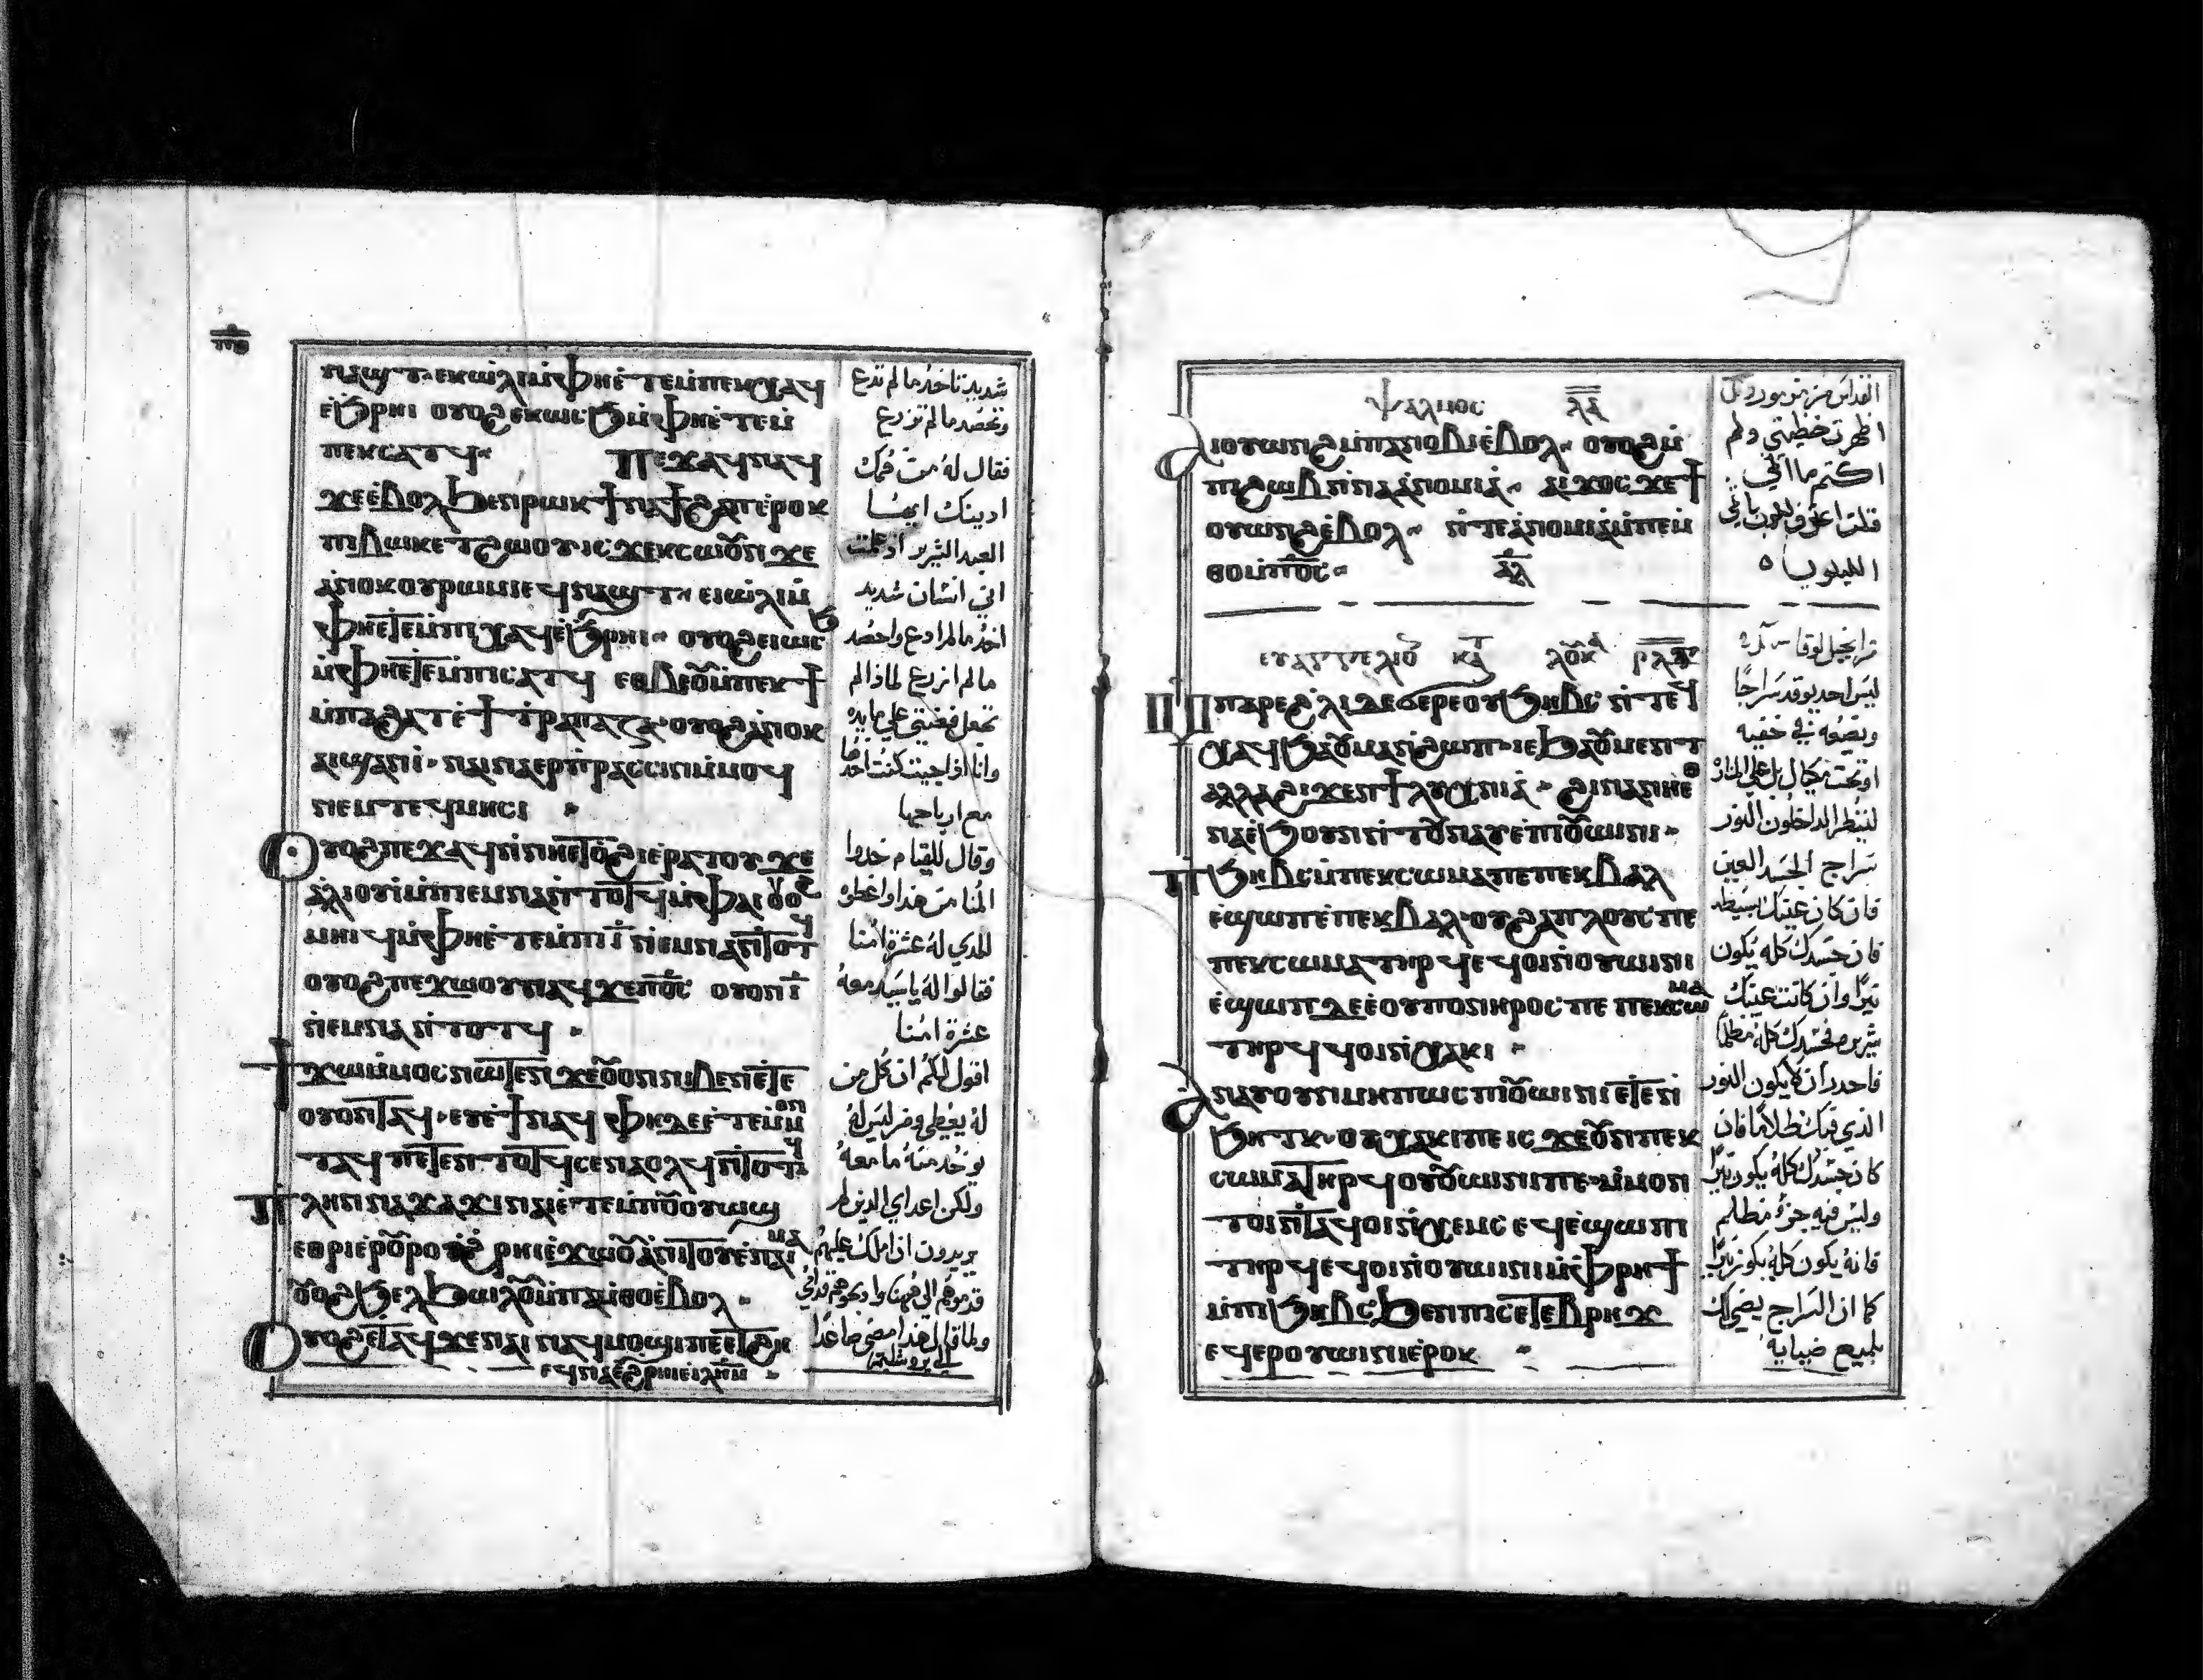 ⲛⲁϣⲧ ⲉⲕⲱⲗⲓ ⲙ̀ⲫⲏⲉ̀ⲧⲉ ⲙ̀ⲡⲉⲕⲭⲁϥ
ⲉ̀ϧⲣⲏⲓ ⲟⲩⲟϩ ⲉⲕⲱⲥϧ ⲙ̀ⲫⲏⲉ̀ⲧⲉ ⲙ̀
ⲡⲉⲕⲥⲁⲧϥ
ⲡⲉϫⲁϥ ⲛⲁϥ
ϫⲉ ⲉ̀ⲃⲟⲗ ϧⲉⲛ ⲣⲱⲕ ϯⲛⲁϯϩⲁⲡ ⲉ̀ⲣⲟⲕ
ⲡⲓⲃⲱⲕ ⲉⲧϩⲱⲟⲩ ⲓⲥϫⲉ ⲕⲥⲱⲟⲩⲛ ϫⲉ
ⲁⲛⲟⲕ ⲟⲩⲣⲱⲙⲓ ⲉϥⲛⲁϣⲧ ⲉⲓⲱⲗⲓ ⲙ̀
ⲫⲏⲉⲧⲉ ⲙ̀ⲡⲓⲭⲁϥ ⲉ̀ϧⲣⲏⲓ ⲟⲩⲟϩ ⲉⲓⲱⲥϧ
ⲙ̀ⲫⲏⲉⲧⲉ ⲙ̀ⲡⲓⲥⲁⲧϥ ⲉⲑⲃⲉⲟⲩ ⲙ̀ⲡⲉⲕϯ
ⲙ̀ⲡⲁϩⲁⲧ ⲉ̀ϯⲧⲣⲁⲡⲉⲍⲁ ⲟⲩⲟϩ ⲁⲛⲟⲕ
ⲁⲓϣⲁⲛⲓ̀ ⲛⲁⲓⲛⲁⲉⲣⲡⲣⲁⲥⲥⲓⲛ ⲙ̀ⲙⲟϥ
ⲛⲉⲙ ⲧⲉϥⲙⲏⲥⲓ
ⲟⲩⲟϩ ⲡⲉϫⲁϥ ⲛ̀ⲛⲏⲉⲧⲟϩⲓ ⲉ̀ⲣⲁⲧⲟⲩ ϫⲉ
ⲁⲗⲓⲟⲩⲓ̀ ⲙ̀ⲡⲉⲙⲛⲁ ⲛ̀ⲧⲟⲧϥ ⲙ̀ⲫⲁⲓ ⲟⲩⲟϩ
ⲙⲏⲓϥ ⲙ̀ⲫⲏⲉ̀ⲧⲉ ⲙ̀ⲡⲓⲓ̅ ⲛ̀ⲉⲙⲛⲁ ⲛ̀ⲧⲟⲧϥ
ⲟⲩⲟϩ ⲡⲉϫⲱⲟⲩ ⲛⲁϥ ϫⲉ ⲡ̅ⲟ̅ⲥ̅ ⲟⲩⲟⲛ ⲓ̅
ⲛ̀ⲉⲙⲛⲁ ⲛ̀ⲧⲟⲧϥ
ϯϫⲱ ⲙ̀ⲙⲟⲥ ⲛⲱⲧⲉⲛ ϫⲉ ⲟⲩⲟⲛ ⲛⲓⲃⲉⲛ ⲉ̀ⲧⲉ
ⲟⲩⲟⲛⲧⲁϥ ⲉⲩⲉ̀ϯ ⲛⲁϥ ⲫⲏ ⲇⲉ ⲉ̀ⲧⲉ ⲙ̀ⲙⲟⲛ
ⲧⲁϥ ⲡⲉⲧⲉⲛⲧⲟⲧϥ ⲥⲉⲛⲁⲟⲗϥ ⲛ̀ⲧⲟⲧϥ
ⲡⲗⲏⲛ ⲛⲁϫⲁϫⲓ ⲛⲁⲓ ⲉ̀ⲧⲉ ⲙ̀ⲡⲟⲩⲟⲩⲱϣ
ⲉⲑⲣⲓⲉⲣⲟⲩⲣⲟ ⲉ̀ϩⲣⲏⲓ ⲉ̀ϫⲱⲟⲩ ⲁ̀ⲛⲓⲧⲟⲩ ⲉ̀ⲡⲁⲓⲙⲁ
ⲟⲩⲟϩ ϧⲉⲗϧⲱⲗⲟⲩ ⲙ̀ⲡⲁⲙ̀ⲑⲟ ⲉ̀ⲃⲟⲗ
ⲟⲩⲟϩ ⲉⲧⲁϥϫⲉ ⲛⲁⲓ ⲛⲁϥⲙⲟϣⲓ ⲡⲉ ⲉⲧϩⲏ
ⲉϥⲛⲁ ⲉ̀ϩⲣⲏⲓ ⲉ̀ⲓ̅ⲗ̅ⲏ̅ⲙ̅
شديد تاخد ما لم تدع
وتحصد ما لم تزرع
فقال له من فمك
ادينك ايها
العبد الشرير اذ علمت
اني انسان شديد
اخد ما لم ادع واحصد
ما لم ازرع لماذا لم
تجعل فضتي علي مايده
وانا اذا جيت كنت اخدها
مع ارباحها
وقال للقيام خدوا
المنا من هذا واعطوه
للدي له عشرة امنا
فقالوا له ياسيد معه
عشرة امنا
اقول لكم ان كل من
له يعطي ومن ليس له
يوخد منه ما معه
ولكن اعداي الدين لم
يريدون ان املك عليهم
قدموهم الي ههنا وادبحوهم قدامي
ولما قال هذا مضي صاعدا
الي يروشليم
ⲯⲁⲗⲙⲟⲥ ⲗⲁ
ⲁⲓⲟⲩⲱⲛϩ ⲙ̀ⲡⲁⲛⲟⲃⲓ ⲉ̀ⲃⲟⲗ ⲟⲩⲟϩ ⲙ̀
ⲡⲓϩⲱⲃⲥ ⲛ̀ⲧⲁⲁ̀ⲛⲟⲙⲓⲁ̀ ⲁⲓϫⲟⲥ ϫⲉ ϯ
ⲟⲩⲱⲛϩ ⲉ̀ⲃⲟⲗ ⲛ̀ⲧⲉⲁ̀ⲛⲟⲙⲓⲁ̀ ⲙ̀ⲡⲉⲙ̀
ⲑⲟ ⲙ̀ⲡ̅ⲟ̅ⲥ̅ ⲁⲗ
ⲉⲩⲁⲅⲅⲉⲗⲓⲟⲩ ⲕⲁⲧ ⲗⲟⲩⲕⲁ
ⲙ̀ⲡⲁⲣⲉ ϩⲗⲓ ⲇⲉ ϭⲉⲣⲉ ⲟⲩϧⲏⲃⲥ ⲛ̀ⲧⲉϥ
ⲭⲁϥ ϧⲁ ⲟⲩⲙⲁ ⲛ̀ϩⲱⲡ ⲓⲉ ϧⲁ ⲟⲩⲙⲉⲛⲧ
ⲁⲗⲗⲁ ϩⲓϫⲉⲛ ϯⲗⲩⲭⲛⲓⲁ̀ ϩⲓⲛⲁ ⲛⲏⲉⲑ
ⲛⲁⲉ̀ϧⲟⲩⲛ ⲛ̀ⲧⲟⲩⲛⲁⲩ ⲉ̀ⲡⲓⲟⲩⲱⲓⲛⲓ
ⲡϧⲏⲃⲥ ⲙ̀ⲡⲉⲕⲥⲱⲙⲁ ⲡⲉ ⲡⲉⲕⲃⲁⲗ
ⲉϣⲱⲡ ⲉ̀ⲡⲉⲕⲃⲁⲗ ⲟⲩϩⲁⲡⲗⲟⲩⲥ ⲡⲉ
ⲡⲉⲕⲥⲱⲙⲁ ⲧⲏⲣϥ ⲉϥⲟⲓ ⲛ̀ⲟⲩⲱⲓⲛⲓ
ⲉ̀ϣⲱⲡ ⲇⲉ ⲉ̀ⲟⲩⲡⲟⲛⲏⲣⲟⲥ ⲡⲉ ⲡⲉⲕⲥⲱⲙⲁ
ⲧⲏⲣϥ ϥⲟⲓ ⲛ̀ⲭⲁⲕⲓ
ⲁⲛⲁⲩ ⲟⲩⲛ ⲙⲏⲡⲱⲥ ⲡⲓⲟⲩⲱⲓⲛⲓ ⲉⲧⲉⲛ̀
ϧⲏⲧⲕ ⲟⲩⲭⲁⲕⲓ ⲡⲉ ⲓⲥϫⲉ ⲟⲩⲛ ⲡⲉⲕ
ⲥⲱⲙⲁ ⲧⲏⲣϥ ⲟⲩⲟⲩⲱⲓⲛⲓ ⲡⲉ ⲙ̀ⲙⲟⲛ
ⲧⲟⲓ ⲛ̀ⲧⲁϥ ⲟⲓ ⲛ̀ⲭⲉⲙⲥ ⲉϥⲉ̀ϣⲱⲡⲓ
ⲧⲏⲣϥ ⲉϥⲟⲓ ⲛ̀ⲟⲩⲱⲓⲛⲓ ⲙ̀ⲫⲣⲏϯ
ⲙ̀ⲡⲓϧⲏⲃⲥ ϧⲉⲛ ⲡⲓⲥⲉⲧⲉⲃⲣⲏϫ
ⲉϥⲉⲣⲟⲩⲱⲓⲛⲓ ⲉ̀ⲣⲟⲕ
اظهرت خطيتي ولم
اكتم ما اثمي
قلت اعترف للرب باثمي
الليلويا
من انجيل لوقا
ليس احد يوقد سراجا
ويضعه في خفيه
او تحت مكيال بل علي المناره
لينظر الداخلون النور
سراج الجسد العين
فان كان عينك بسيطه
فان جسدك كله يكون
نيرا وان كانت عينك
شريره فجسدك كله مظلما
فاحدر ان لا يكون النور
الدي فيك ظلاما فان
كان جسدك كله يكون نيرا
وليس فيه جزؤ مظلم
فانه يكون كله يكون نيرا
كما ان السراج يضي لك
بلميع ضيايه